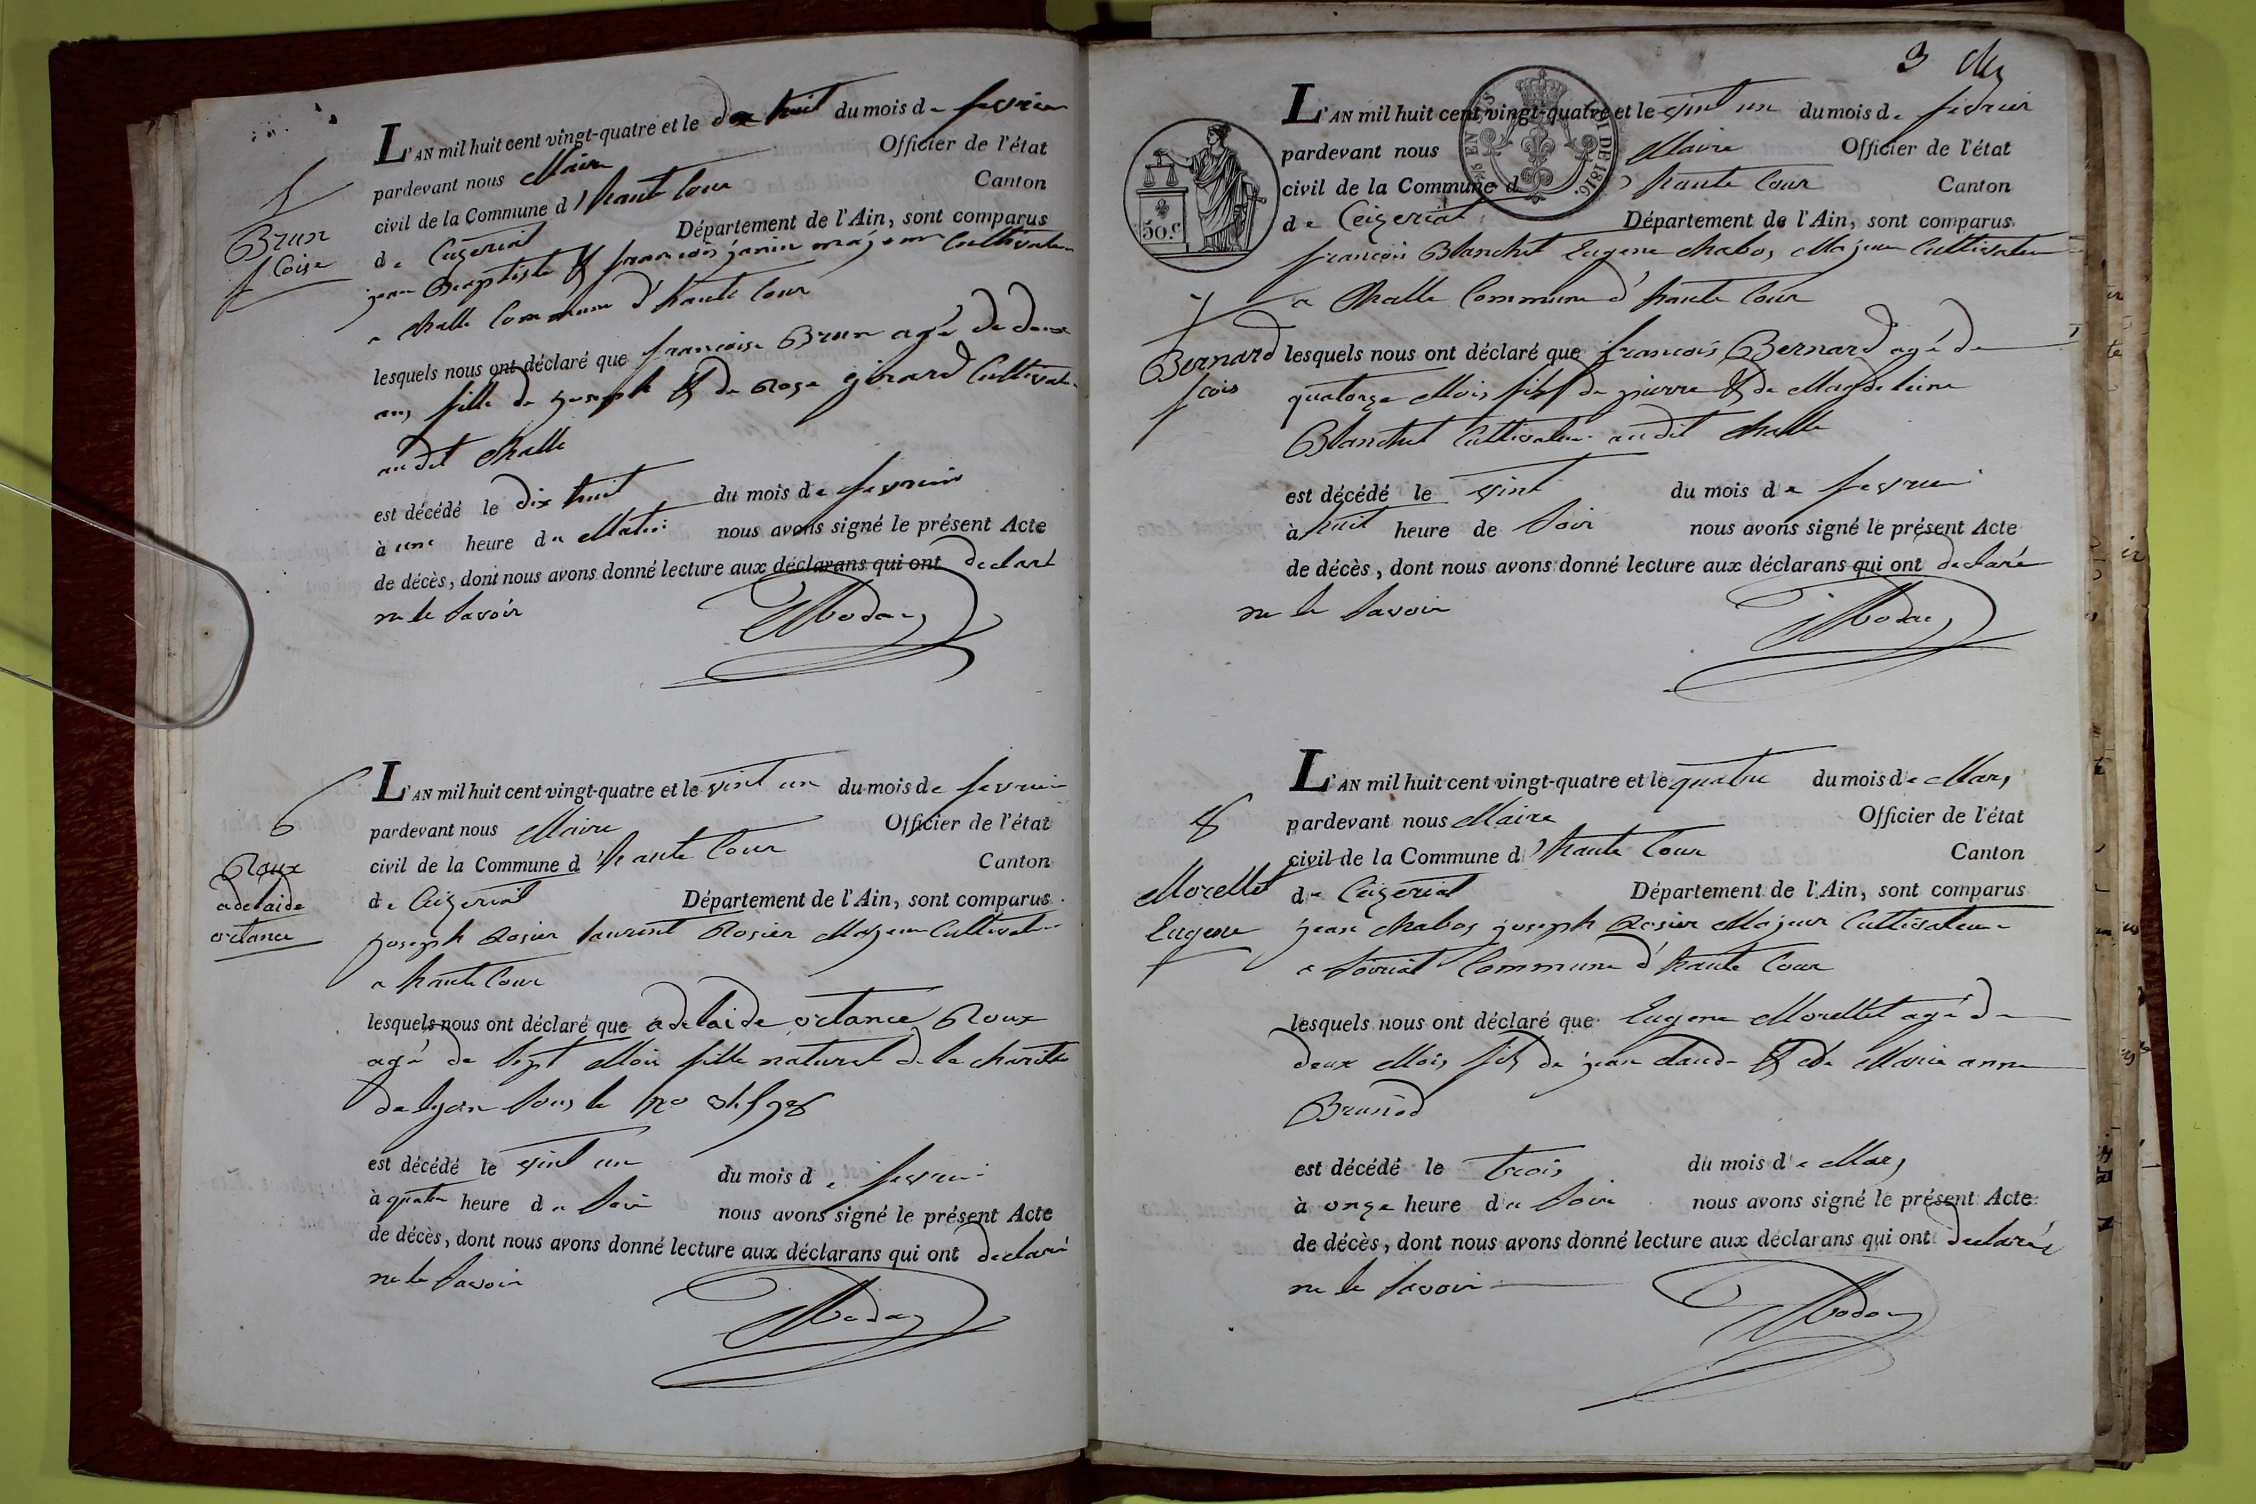 5
Brun
fcoise
L'AN mil huit cent vingt-quatre et le dix huit du mois de fevrier
pardevant nous Maire Officier de l'état
civil de la Commune d'haute Cour Canton
de Ceizeriat Département de l'Ain, sont comparus
jean Baptiste & françois janin majeur Cultivateur
a Challe Commune d'haute Cour
lesquels nous ont déclaré que francoise Brun agé de deux
ans fille de joseph & de Rose girard Cultivateur
audit Challe
est décédé le dix huit du mois de fevrier
à une heure du Matin nous avons signé le présent Acte
de décès, dont nous avons donné lecture aux déclarans qui ont declaré
ne le Savoir
6
Roux
adelaide
octance
L'AN mil huit cent vingt-quatre et le vint un du mois de fevrier
pardevant nous Maire Officier de l'état
civil de la Commune d'haute Cour Canton
de Ceizeriat Département de l'Ain, sont comparus
joseph Rosier laurent Rosier Majeur Cultivateur
a haute Cour
lesquels nous ont déclaré que adelaide octance Roux
agé de Sept Mois fille naturel de la charitte
de lyon Sous le no
est décédé le vint un du mois de fevrier
à quatre heure du Soir nous avons signé le présent Acte
de décès, dont nous avons donné lecture aux déclarans qui ont declaré
ne le Savoir
3
50.c
7
Bernard
fcois
L'AN mil huit cent vingt-quatre et le vint un du mois de fevrier
pardevant nous Maire Officier de l'état
civil de la Commune d'haute Cour Canton
de Ceizeriat Département de l'Ain, sont comparus
francois Blanchet Eugene Chabos Majeur Cultivateur
a Challe Commune d'haute Cour
lesquels nous ont déclaré que francois Bernard agé de
quatorze Mois fils de pierre & de Magdeleine
Blanchet Cultivateur audit Challe
est décédé le vint du mois de fevrier
à huit heure de Soir nous avons signé le présent Acte
de décès, dont nous avons donné lecture aux déclarans qui ont declaré
ne le Savoir
8
Morellet
Eugene
L'AN mil huit cent vingt-quatre et le quatre du mois de Mars
pardevant nous Maire Officier de l'état
civil de la Commune d'haute Cour Canton
de Ceizeriat Département de l'Ain, sont comparus
jean Chabos joseph Rosier Majeur Cultivateur
a Commune d'haute Cour
lesquels nous ont déclaré que Eugene Morellet agé de
deux Mois fils de jean claude & de Marie anne
Brunod
est décédé le trois du mois de Mars
à onze heure du Soir nous avons signé le présent Acte
de décès, dont nous avons donné lecture aux déclarans qui ont declarés
ne le Savoir